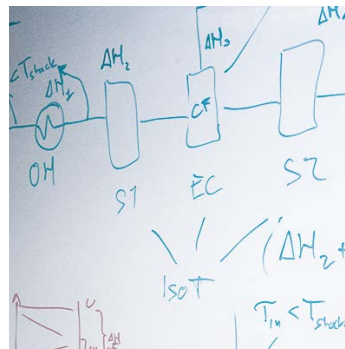 < Tstack
ΔH1
ΔH2
ΔH3
CF
OH
S1
EC
S2
IsoT
(ΔH2 +
Tin < Tstack
ΔH